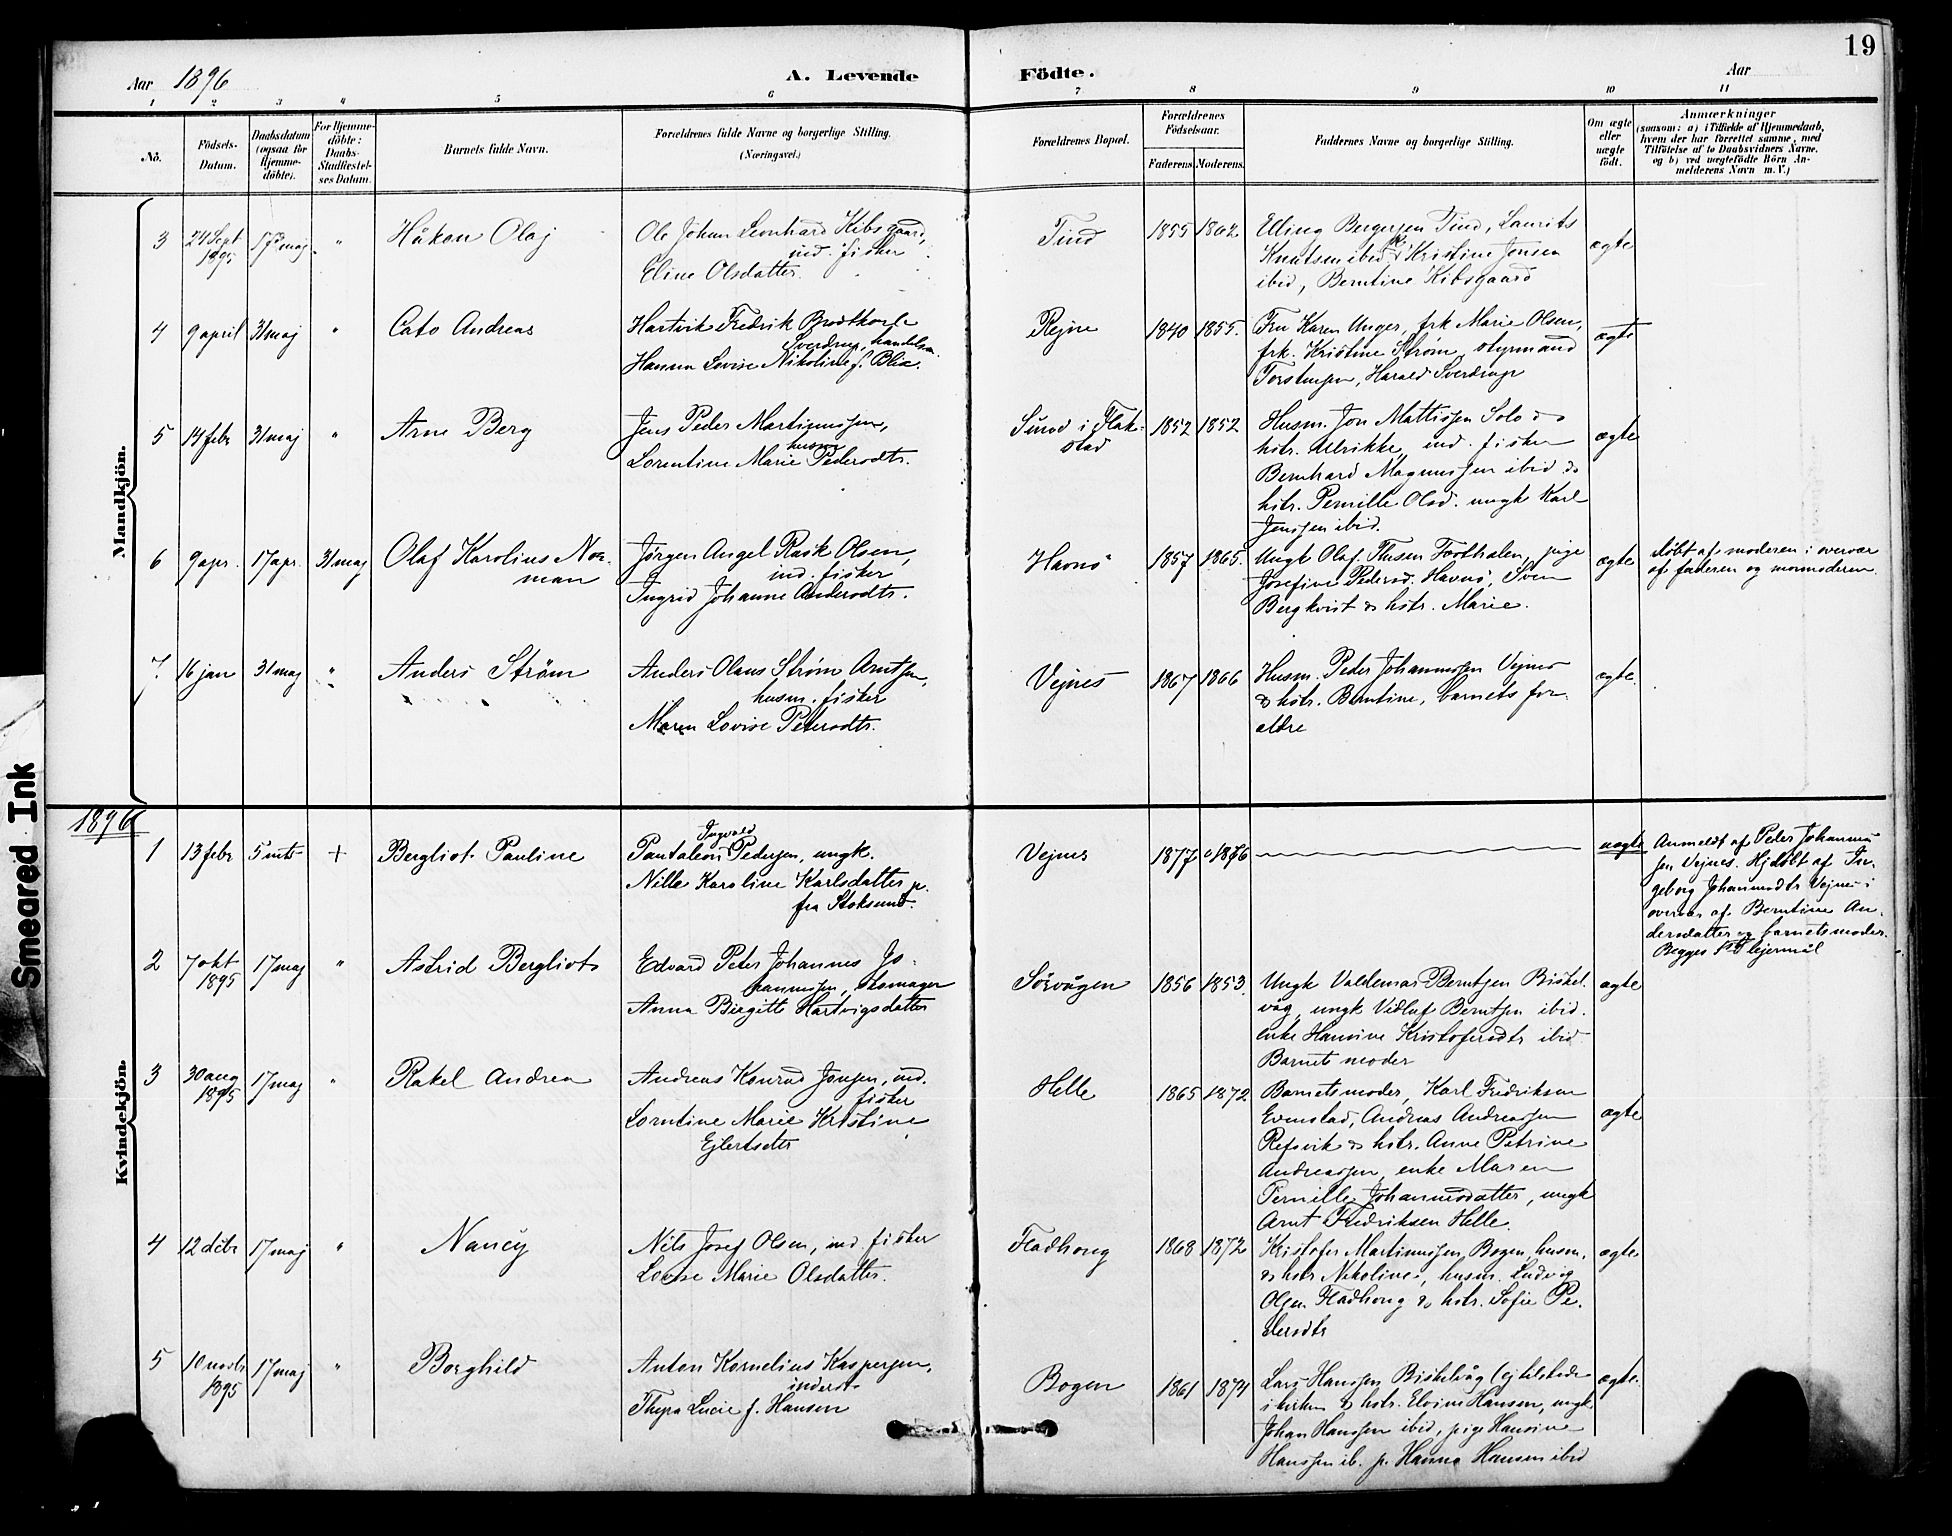 19
Aar 1896
A. Levende Födte.
Aar
1 2 3 4 5 6 7 8 9 10 11
No.
Födsels-Datum.
Daabsdatum (ogsaa for Hjemme-döbte).
For Hjemme-döbte: Daabs-Stadfæstelses Datum.
Barnets fulde Navn.
Forældrenes fulde Navne og borgerlige Stilling.
(Næringsvei.)
Forældrenes Bopæl.
Forældrenes Födselsaar.
Faderens. Moderens.
Faddernes Navne og borgerlige Stilling.
Om ægte eller uægte födt.
Anmærkninger
(saasom: a) i Tilfælde af Hjemmedaab, hvem der har forrettet samme, med Tilföielse af to Daabsvidners Navne, og b) ved uægtefödte Börn Anmelderens Navn m. V.)
Mandkjön.
3 24 Sept 1895 17 maj " Håkon Olaj
Ole Johan Leonhard Kibsgaard,
ind. fisker
Eline Olsdatter
Tind 1855 1862
Elling Bergersen Tind, Laurits
Knutsen ibid, Kristine Jensen
ibid, Berntine Kibsgaard
ægte
4 9 april 31 maj " Cato Andreas
Hartvik Fredrik Brodtkorb
Sverdrup, handelsm.
Hanna Lovise Nikoline f. Blix.
Rejne 1840 1855.
Fru Karen Unger, frk Marie Olsen,
frk. Kristine Strøm, styrmand
Torstensen, Harald Sverdrup
ægte
5 14 febr 31 maj " Arne Berg
Jens Peder Martinussen,
husm
Lorentine Marie Pedersdtr.
Sund i Flak-
stad
1852 1852
Husm. Jon Mattissen Solo &
hstr. Ulrikke, ind. fisker
Bernhard Magnussen ibid &
hstr. Pernille Olsd. ungk Karl
Jenssen ibid.
ægte
6 9 apr. 17 apr. 31 maj Olaf Karolius Nor-
man
Jørgen Angel Rask Olsen,
ind. fisker
Ingrid Johanne Andersdtr.
Havnø 1857 1865.
Ungk Olaf Thusen Forthalen, pige
Josefine Pedersd. Havnø, Sven
Bergkvist & hstr. Marie.
ægte
døbt af moderen i overvær
af faderen og mormoderen.
7. 16 jan 31 maj " Anders Strøm
Anders Olaus Strøm Arntsen,
husm. fisker
Maren Lovise Petersdtr.
Vejnes 1867 1866
Husm. Peder Johannessen Vejnes
& hstr. Berntine, barnets for-
ældre
ægte.
1896
Kvindekjön.
1 13 febr 5 mts + Bergliot Pauline
Ingvald
Pantaleon Pedersen, ungk.
Nille Karoline Karlsdatter p.
fra Stoksund.
Vejnes 1877 1876
uægte
Anmeldt af Peder Johannes-
sen Vejnes. Hjdøbt af In-
geborg Johannesdtr Vejnes i
overvær af Berntine An-
dersdatter og barnets moder.
Begges 1ste lejermål
2 7 okt 1895 17 maj " Astrid Bergliot
Edvard Peter Johannes Jo-
hannessen, skomager
Anna Birgitte Hartvigsdatter
Sörvågen 1856 1853.
Ungk Valdemar Berntsen Bisket-
våg, ungk Vidluf Berntsen ibid.
enke Hansine Kristofersdtr ibid
Barnets moder
ægte
3 30 aug 1895 17 maj " Rakel Andrea
Andreas Konrad Jensen, ind.
fisker
Lorntine Marie Kristine
Ejlertsdtr
Helle 1865 1872
Barnets moder, Karl Fredriksen
Evenstad, Andreas Andreassen
Refsvik & hstr. Anne Petrine
Andreassen, enke Maren
Pernille Johannesdatter, ungk
Arnt Fredriksen Helle.
ægte
4 12 dcbr 17 maj " Nancy
Nils Josef Olsen, ind. fisker
Lovise Marie Olsdatter.
Fladhong 1868 1872
Kristofer Martinussen, Bogen, husm.
& hstr Nikoline, husm. Ludvig
Olsen Fladhong & hstr. Sofie Pe-
dersdtr
ægte
5 10 novbr 1895 17 maj " Borghild
Anton Kornelius Kaspersen,
inderst
Thyra Lucie f. Hansen
Bogen 1861 1874
Lars Hanssen Bisketvåg (ej tilstede
i kirken & hstr. Elvine Hansen, ungk.
Johan Hanssen ibid, pige Hansine
Hanssen ib. p. Hanna Hansen ibid
ægte.
Smeared Ink